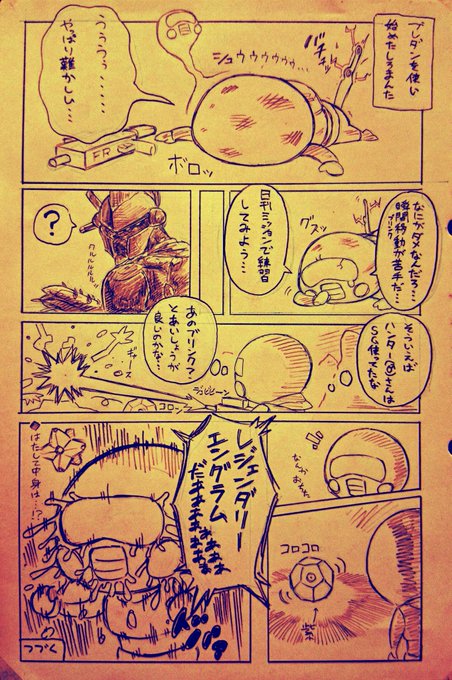 ブレダンを使い
始めたしろまんた
バチッ
シュウゥゥゥゥ…
うぅぅう……
やっぱり難かしい…
FR
ボロッ
なにがダメなんだろ…
瞬間移動が苦手だ…
ブリンク
グスッ
日刊ミッションで練習
してみよう…
?
クルルルルッ
そういえば
ハンター@さんは
SG使ってたな
あのブリンクで
とあいしょうが
良いのかな…
コロン
なんかおちた
コロコロ
紫
レジェンダリー
エングラム
だぁぁぁぁ
ぁぁぁぁぁ
はたして中身は…!?
つづく